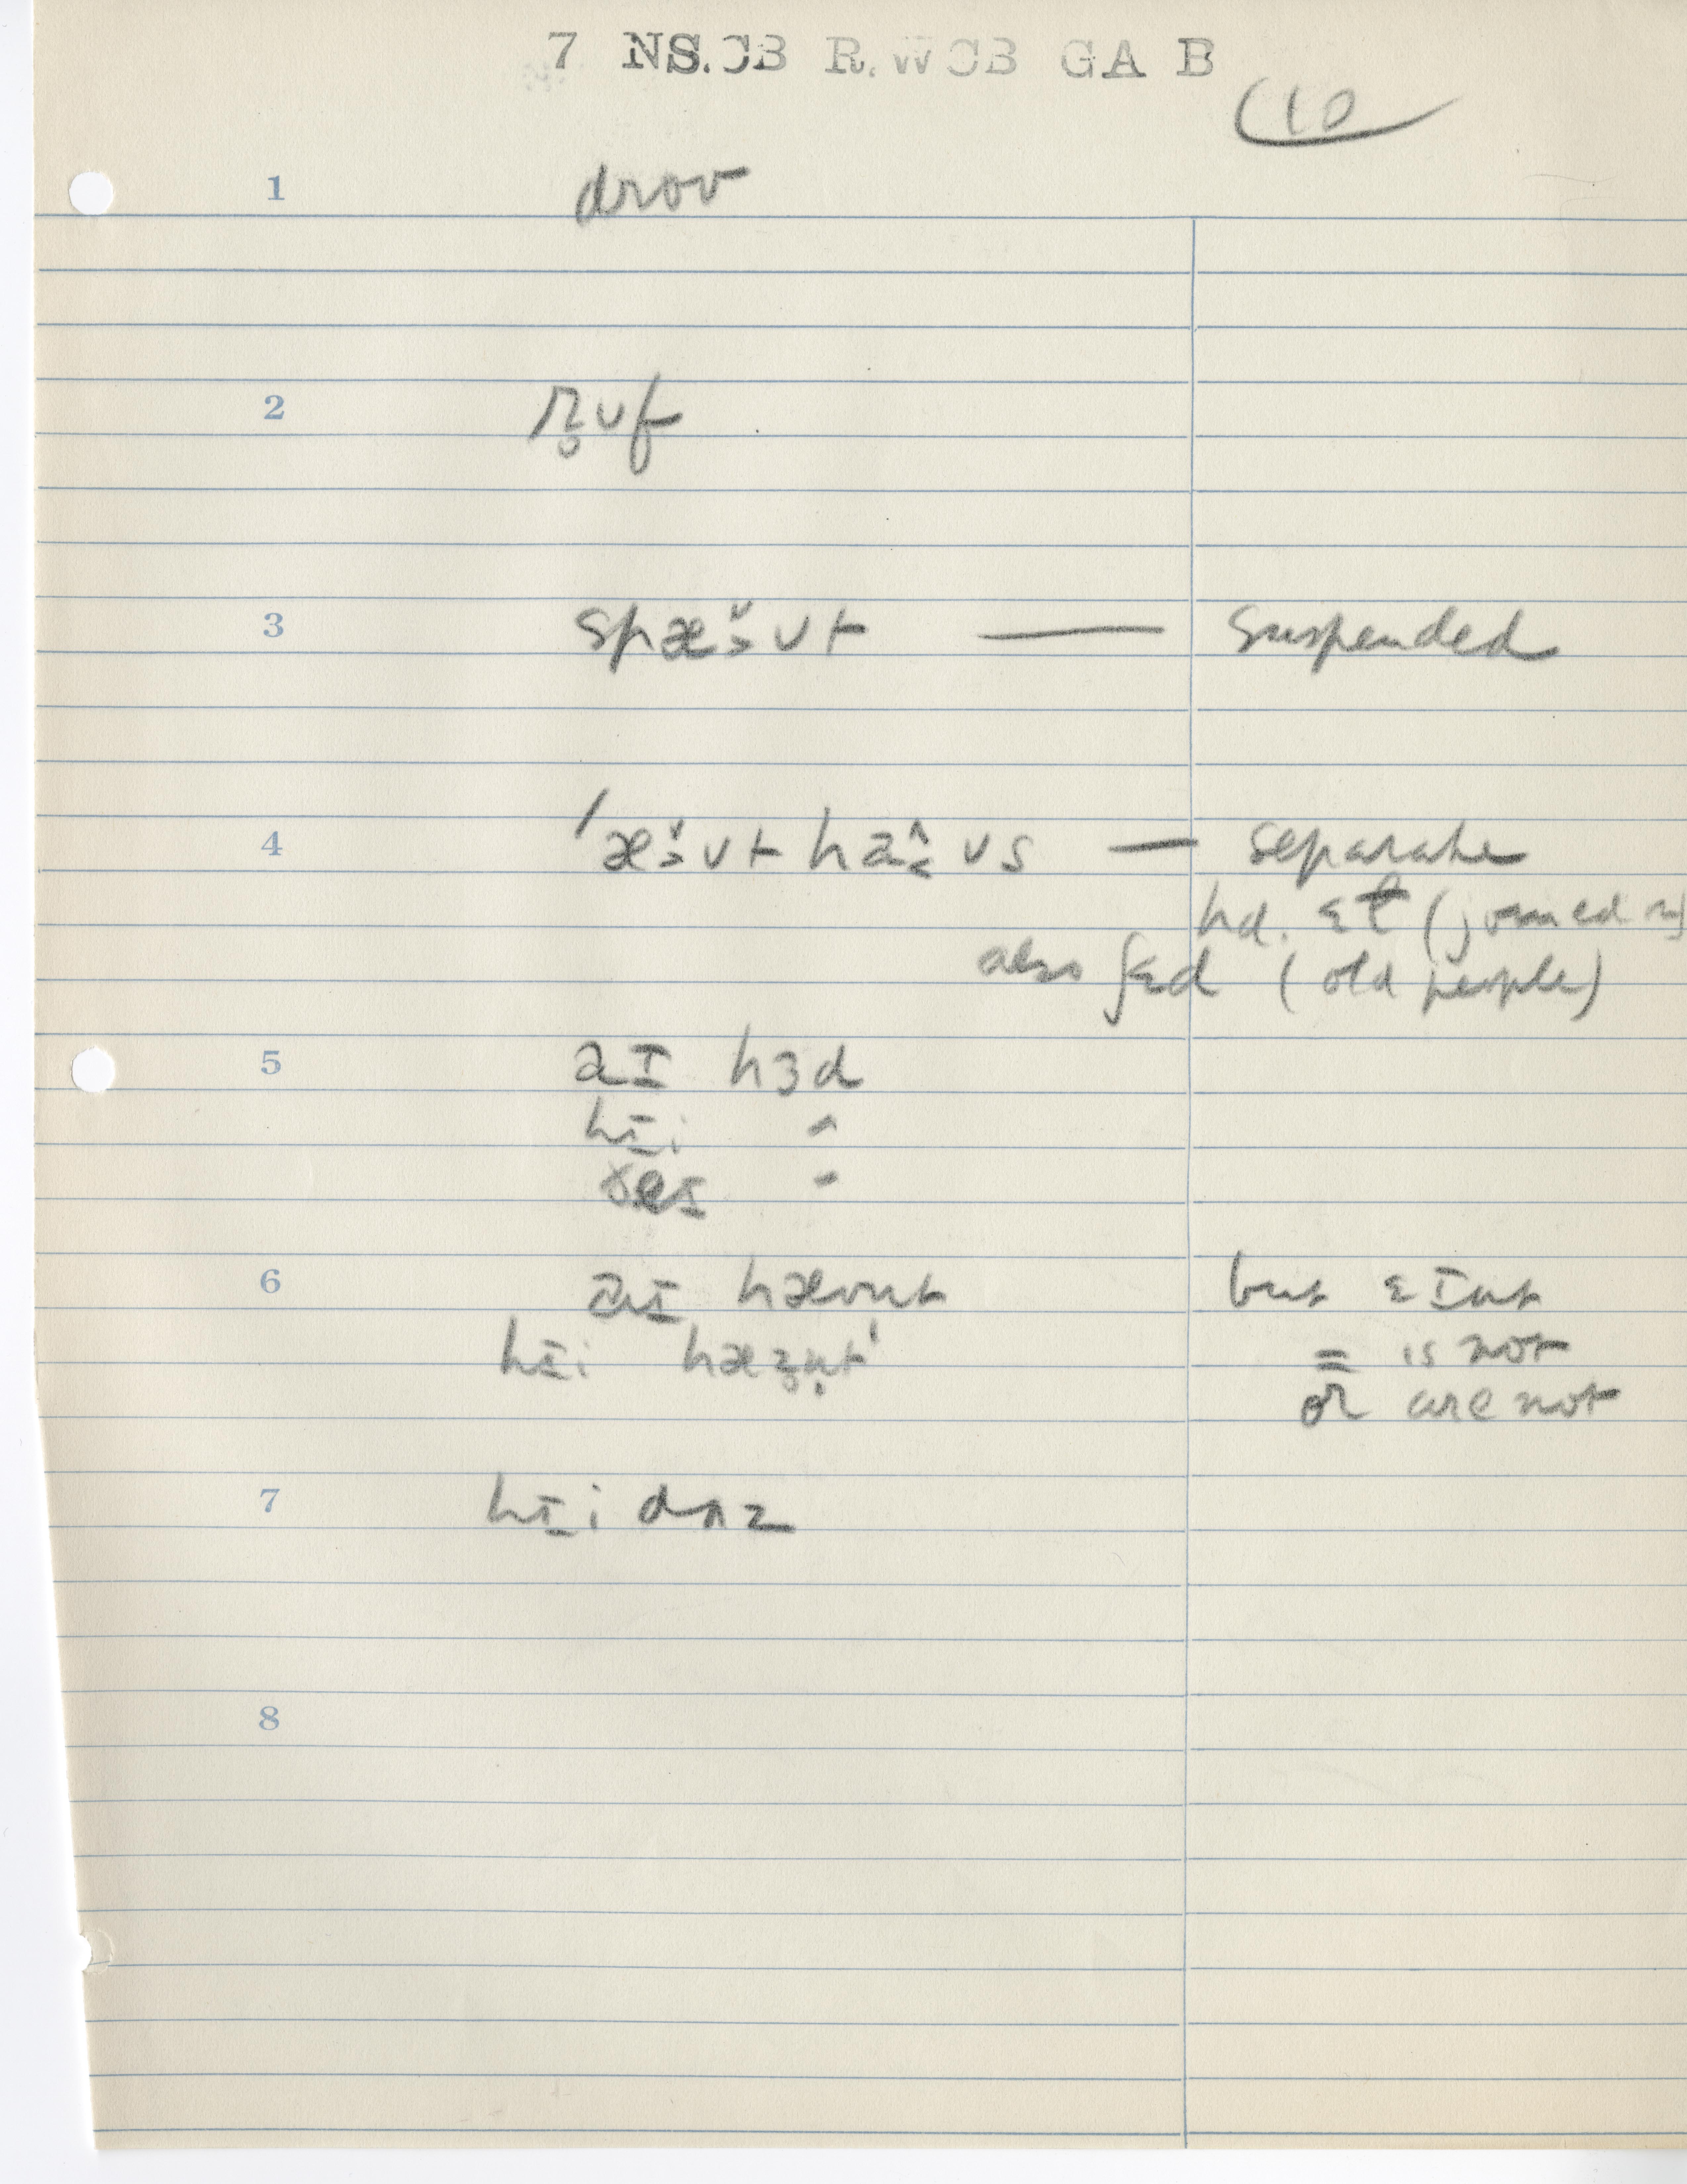 7 NS.CB R.WCB GA B
10
1 drov
2 rʊf
3 spæ̌ʊt — suspended
4 'æ̌ʊt haʊs — separate
hd. ɛt (joined
also ʃɛd (old people)
5 aɪ hɜd
hɪi "
ðeɪ "
6 aɪ hævnt but ɛɪnt
hɪi hæznt = is not
or are not
7 hɪi dʌz
8